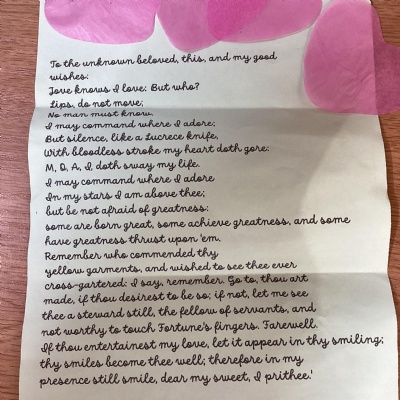 To the unknown beloved, this, and my good
wishes:
Jove knows I love: But who?
Lips, do not move;
No man must know.
I may command where I adore;
But silence, like a Lucrece knife,
With bloodless stroke my heart doth gore:
M, O, A, I, doth sway my life.
I may command where I adore
In my stars I am above thee;
but be not afraid of greatness:
some are born great, some achieve greatness, and some
have greatness thrust upon 'em.
Remember who commended thy
yellow garments, and wished to see thee ever
cross-gartered: I say, remember. Go to, thou art
made, if thou desirest to be so; if not, let me see
thee a steward still, the fellow of servants, and
not worthy to touch Fortune's fingers. Farewell.
If thou entertainest my love, let it appear in thy smiling;
thy smiles become thee well; therefore in my
presence still smile, dear my sweet, I prithee.'